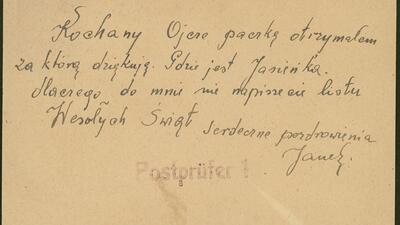 Kochany Ojcze paczkę otrzymałem
za którą dziękuję. Gdzie jest Jasieńka.
dlaczego do mnie nie napiszecie listu
Wesołych Świąt serdeczne pozdrowienia
Janek.
Postprüfer 1
8